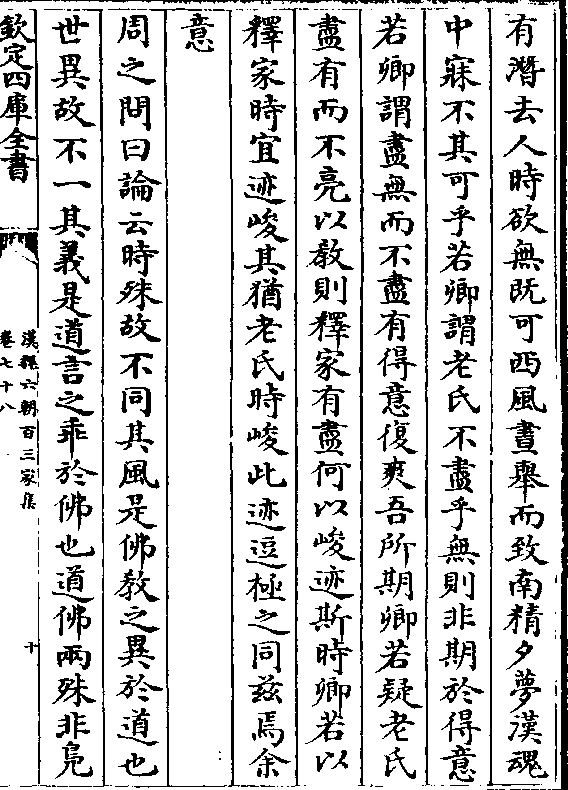 有濳去人時欲無既可西風晝舉而致南精夕夢漢魂
中寐不其可乎若卿謂老氏不盡乎無則非期於得意
若卿謂盡無而不盡有得意復爽吾所期卿若疑老氏
盡有而不亮以教則釋家有盡何以峻迹斯時卿若以
釋家時宜迹峻其猶老氏時峻此迹逗極之同兹焉余
意
周之問曰論云時殊故不同其風是佛教之異於道也
世異故不一其義是道言之乖於佛也道佛兩殊非鳬
欽定四庫全書
漢魏六朝百三家集
卷七十八
十